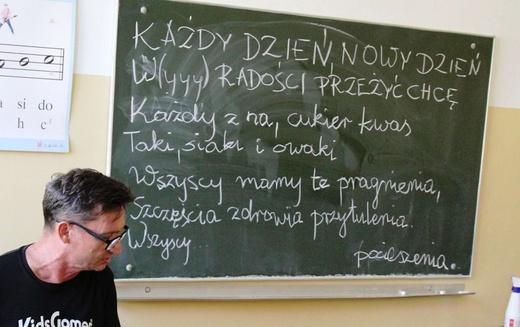 KAŻDY DZIEŃ, NOWY DZIEŃ
W(yyy) RADOŚCI PRZEŻYĆ CHCĘ
Każdy z na, cukier kwas
Taki, siaki i owaki
Wszyscy mamy te pragnienia,
Szczęścia zdrowia przytulenia.
Wszyscy pocieszenia.
a si do
h c
KidsGames